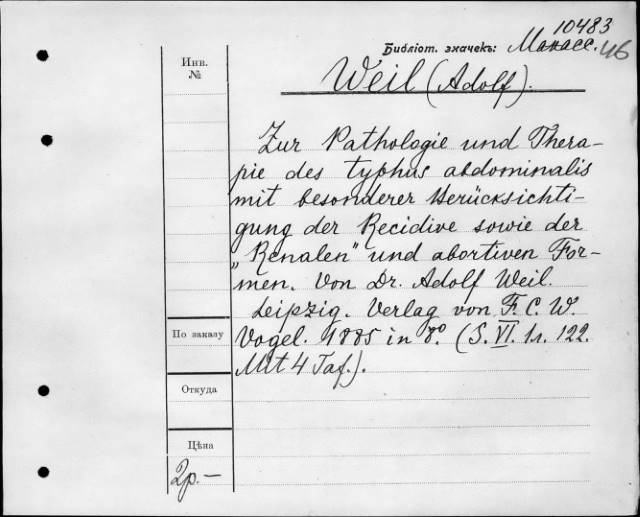 10483
Библіот. значекъ: Манасс. 46
Инв.
№
Weil (Adolf).
Zur Pathologie und Thera-
pie des typhus abdominalis
mit besonderer Berücksichti-
gung der Recidive sowie der
„Renalen" und abortiven For-
men. Von Dr. Adolf Weil.
Leipzig. Verlag von F. C. W.
По заказу
Vogel. 1885 in 8°. (S. VI. 1л. 122.
Mit 4 Taf.).
Откуда
Цѣна
2р.—